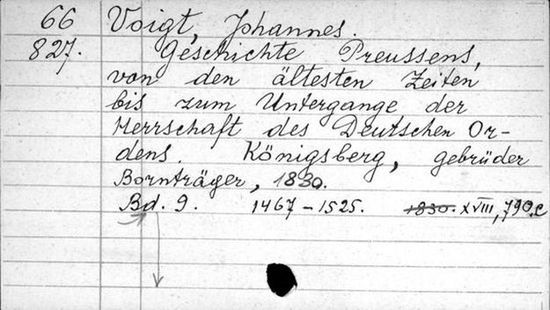 66 Voigt, Johannes.
827. Geschichte Preussens,
von den ältesten Zeiten
bis zum Untergange der
Herrschaft des Deutschen Or-
dens. Königsberg, gebrüder
Bornträger, 1830.
Bd. 9. 1467-1525. 1830. XVIII, 790.c